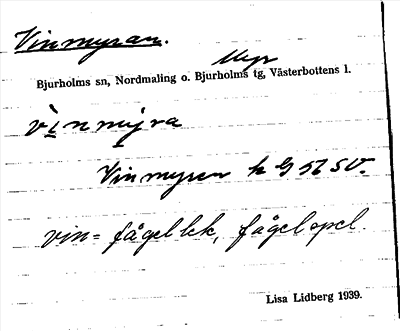 Vinmyran.
Myr
Bjurholms sn, Nordmaling o. Bjurholms tg, Västerbottens l.
vìnmyra
Vinmyren k G 56 SV.
vin = fågellek, fågelspel.
Lisa Lidberg 1939.